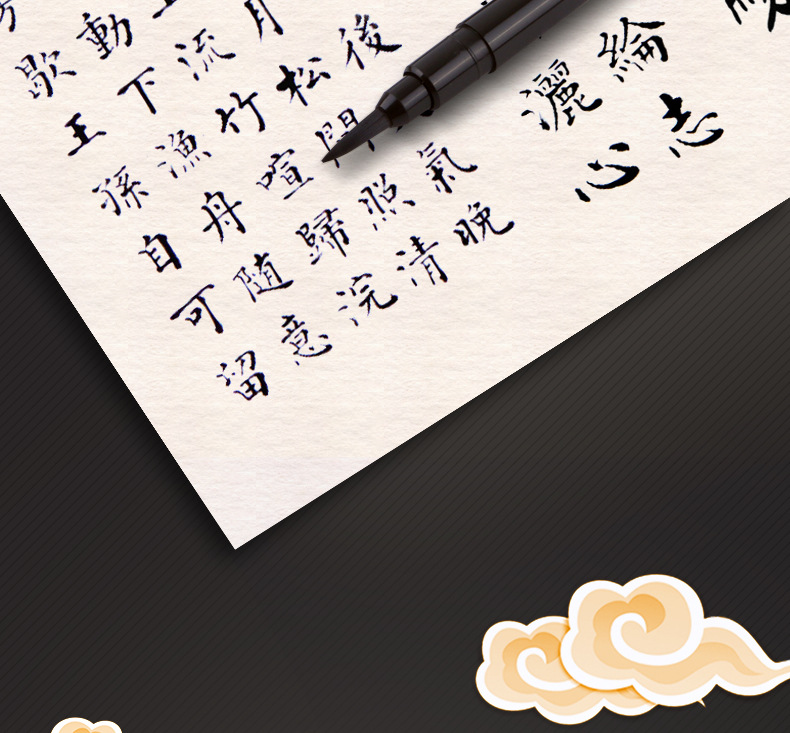 綸志
灑心
後氣晚
月松間照清
流竹喧歸浣
動下漁舟随意
歇王孫自可留